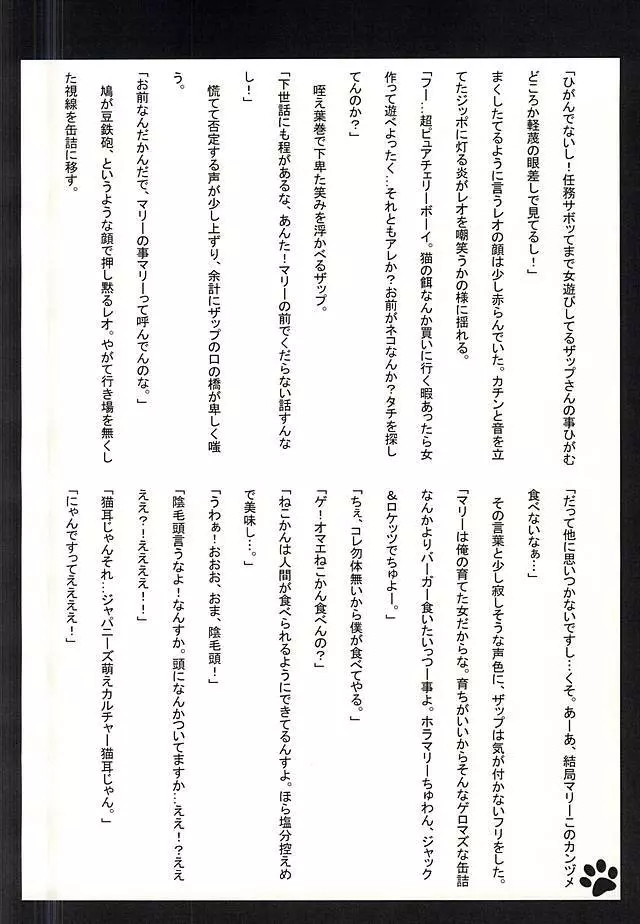 「ひがんでないし！任務サボッてまで女遊びしてるザップさんの事ひがむ
どころか軽蔑の眼差しで見てるし！」
まくしたてるように言うレオの顔は少し赤らんでいた。カチンと音を立
てたジッポに灯る炎がレオを嘲笑うかの様に揺れる。
「フー…超ピュアチェリーボーイ。猫の餌なんか買いに行く暇あったら女
作って遊べよったく…それともアレか？お前がネコなんか？タチを探し
てんのか？」
咥え葉巻で下卑た笑みを浮かべるザップ。
「下世話にも程があるな、あんた！マリーの前でくだらない話すんな
し！」
慌てて否定する声が少し上ずり、余計にザップの口の橋が卑しく嗤
う。
「お前なんだかんだで、マリーの事マリーって呼んでんのな。」
鳩が豆鉄砲、というような顔で押し黙るレオ。やがて行き場を無くし
た視線を缶詰に移す。
「だって他に思いつかないですし…くそ。あーあ、結局マリーこのカンヅメ
食べないなぁ…」
その言葉と少し寂しそうな声色に、ザップは気が付かないフリをした。
「マリーは俺の育てた女だからな。育ちがいいからそんなゲロマズな缶詰
なんかよりバーガー食いたいっつー事よ。ホラマリーちゅわん、ジャック
＆ロケッツでちゅよー。」
「ちぇ、コレ勿体無いから僕が食べてやる。」
「ゲ！オマエねこかん食べんの？」
「ねこかんは人間が食べられるようにできてるんすよ。ほら塩分控えめ
で美味し…。」
「うわぁ！おおお、おま、陰毛頭！」
「陰毛頭言うなよ！なんすか。頭になんかついてますか…ええ！？ええ
ええ？！ええええ！！」
「猫耳じゃんそれ…ジャパニーズ萌えカルチャー猫耳じゃん。」
「にゃんですってええええ！」